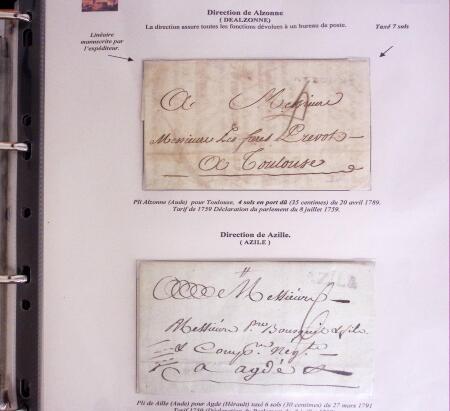 Direction de Alzonne
( DEALZONNE)
La direction assure toutes les fonctions dévolues à un bureau de poste.
Taxé 7 sols
Linéaire
manuscrite par
l'expéditeur.
A Messieurs
Messieurs Les freres Prevot
A Toulouse
Pli Alzonne (Aude) pour Toulouse, 4 sols en port dû (35 centimes) du 20 avril 1789.
Tarif de 1759 Déclaration du parlement du 8 juillet 1759.
Direction de Azille.
( AZILE)
AZILE
Messieurs
Messieurs Bousquet & fils
& Comp. Neg.
a agde
Pli de Aille (Aude) pour Agde (Hérault) taxé 6 sols (30 centimes) du 27 mars 1791